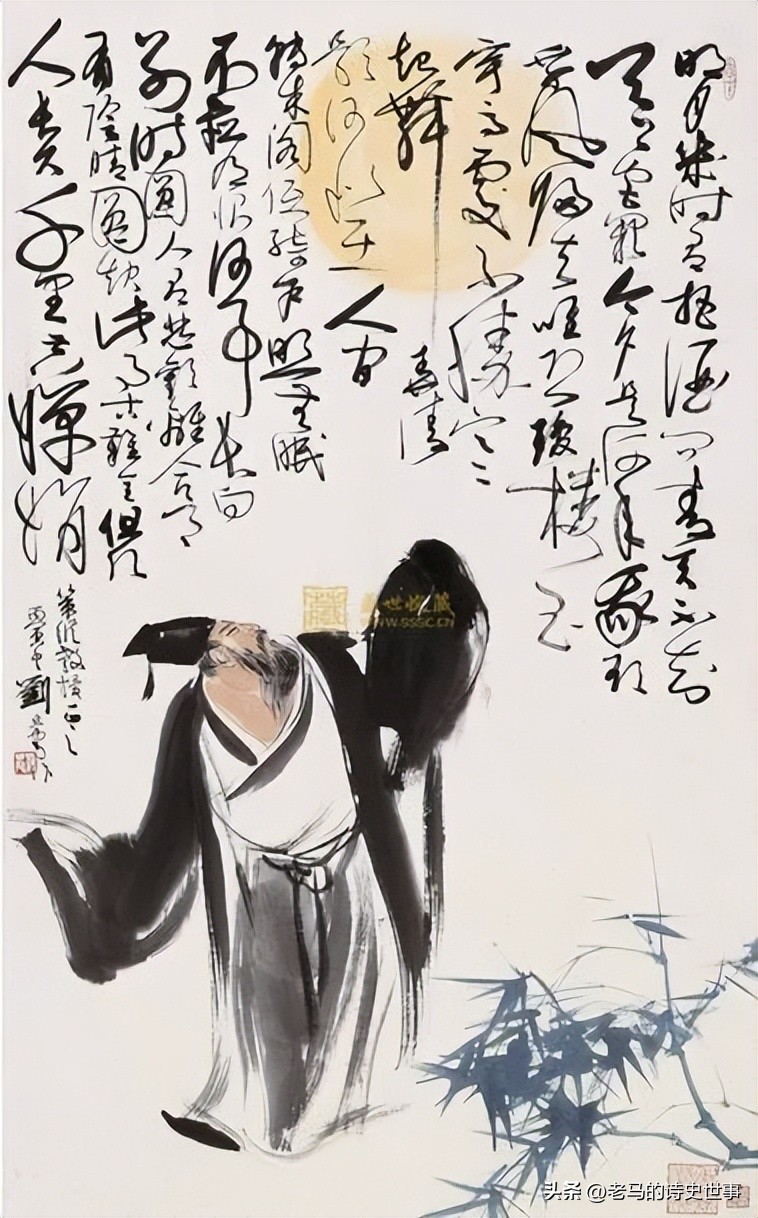 明月幾时有把酒问青天不知
天上宫阙今夕是何年我欲
乘风归去唯恐琼楼玉
宇高处不胜寒
起舞弄清
影何似在人间
转朱阁低绮户照无眠
不应有恨何事长向
别时圆人有悲欢离合月
有阴晴圆缺此事古难全但愿
人长久千里共婵娟
教授正之
丙寅年 劉
盛世收藏
WWW.SSSC.CN
头条 @老马的诗史世事